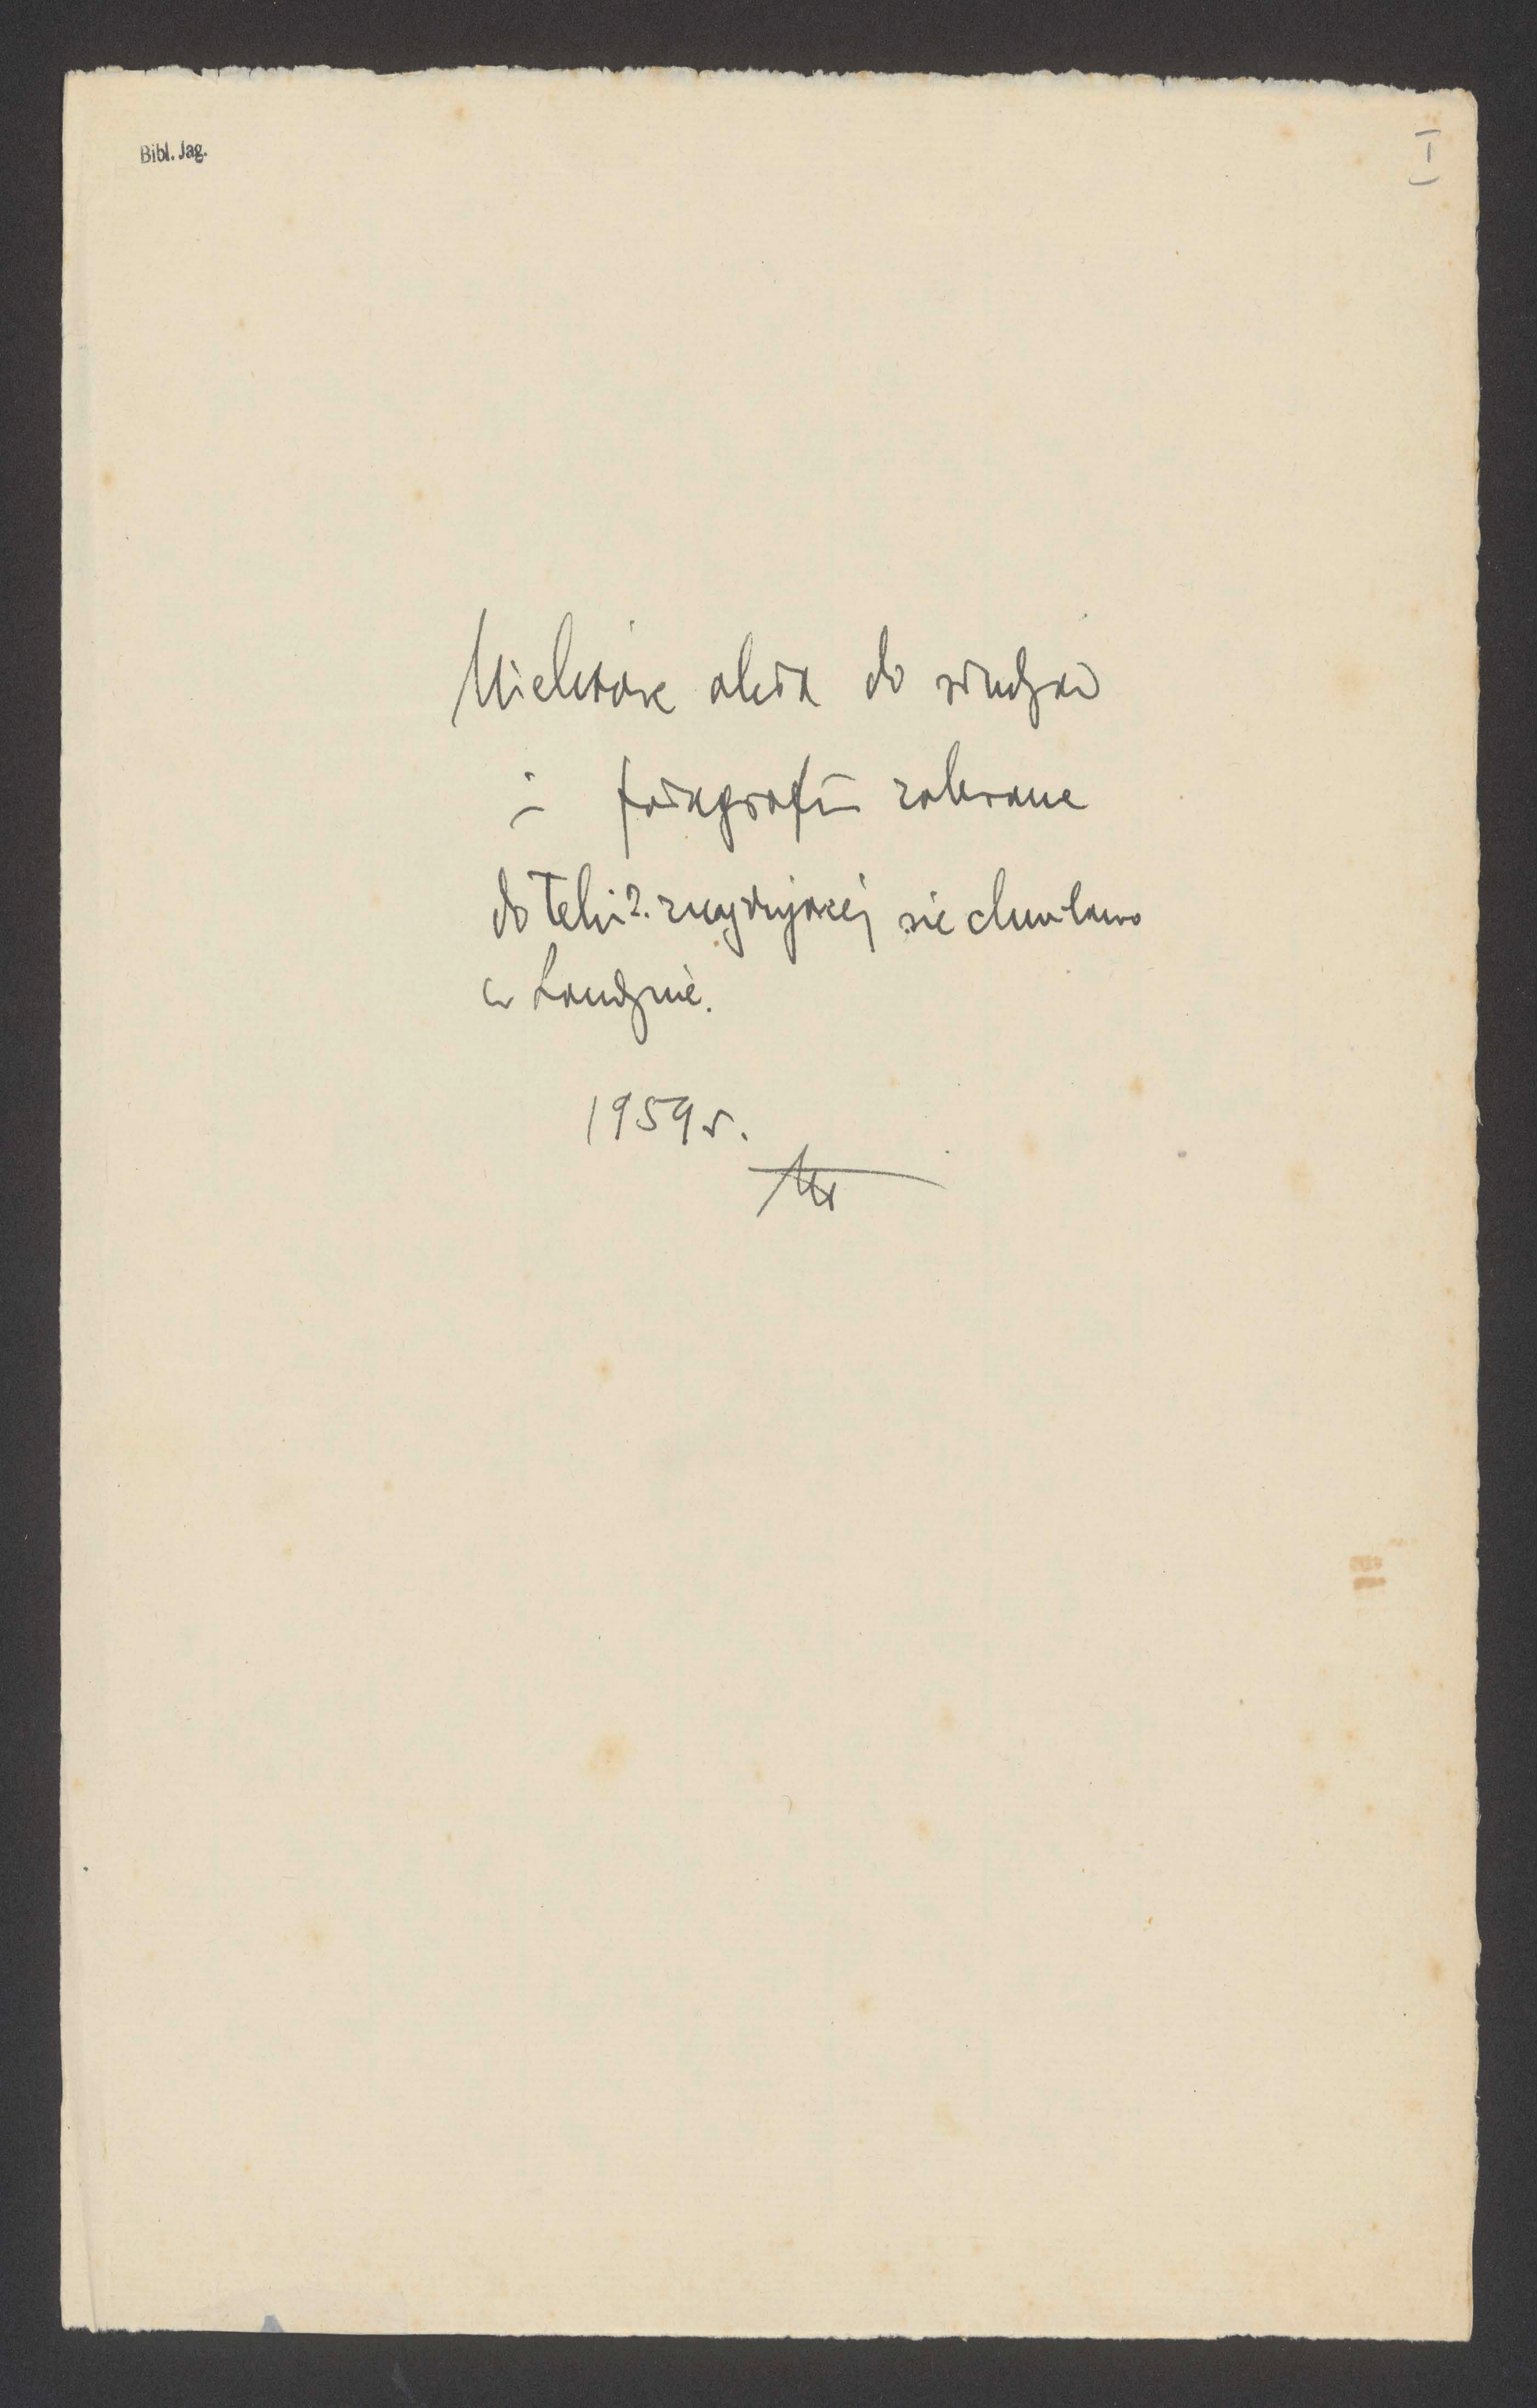 Bibl. Jag.
I
Niektóre akta do studiów
i fotografii zabrane
do Teki 2. znajdującej się chwilowo
w Londynie.
1959 r.